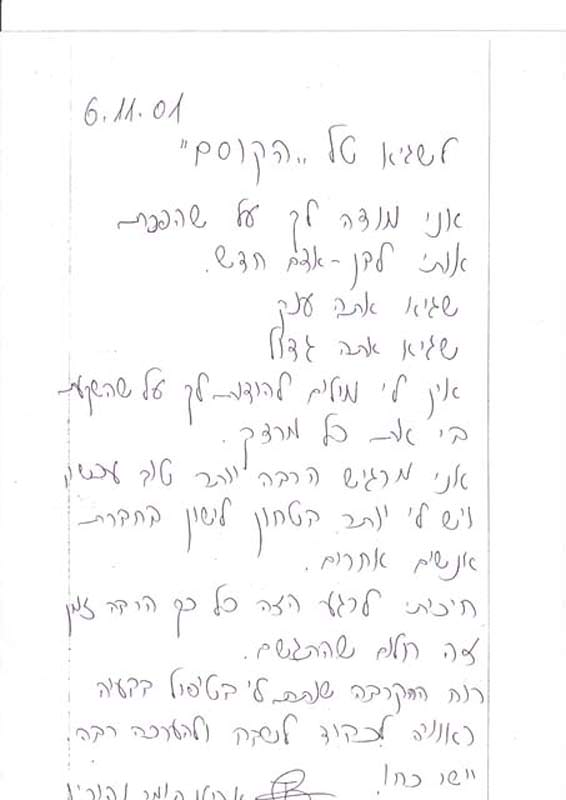 6.11.01
לשגיא טל „הקוסם"
אני מודה לך על שהפכת
אותי לבן-אדם חדש.
שגיא אתה ענק
שגיא אתה גדול
אין לי מילים להודות לך על שהשקעת
בי את כל מרצך.
אני מרגיש הרבה יותר טוב עכשיו
ויש לי יותר בטחון לישון בחברת
אנשים אחרים.
חיכיתי לרגע הזה כל כך הרבה זמן
זה חלום שהתגשם.
רוח ההקרבה שנתת לי בטיפול בבעיה
ראויה לכבוד לשבח ולהערכה רבה.
יישר כח!